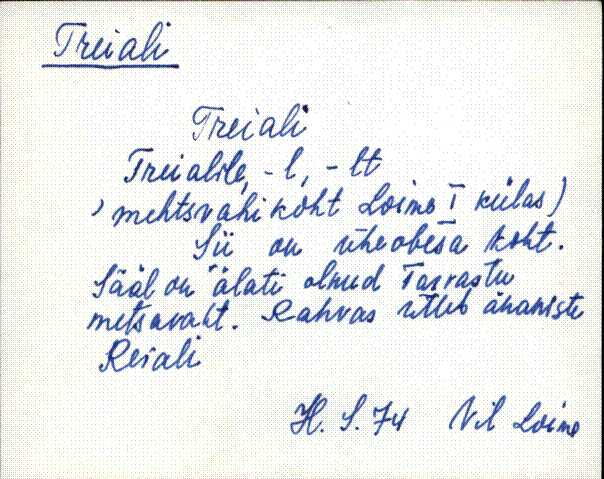 Treiali
Treiali
Treialile, -l, -lt
, mehtsvahi koht Loime I külas)
Sii on üheobesa koht.
Sääl on alati olnud Tarvastu
metsavaht. Rahvas ütleb
Reiali
H. S. 74 Vil Loime